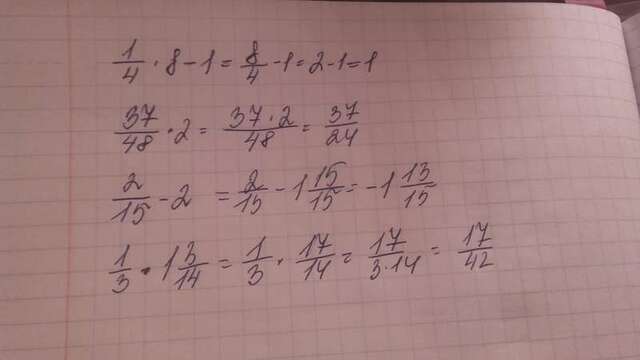 1/4 · 8 - 1 = 8/4 - 1 = 2 - 1 = 1
37/48 · 2 = 37·2/48 = 37/24
2/15 - 2 = 2/15 - 1 15/15 = -1 13/15
1/3 · 1 3/14 = 1/3 · 17/14 = 17/3·14 = 17/42